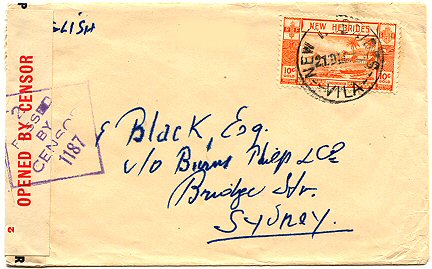 GLISH
NEW HEBRIDES
10c 10c
NEW
VILA
OPENED BY CENSOR
2
BY
CENSOR
1187
Black, Esq.
c/o Burns Philp
Bridge Str.
Sydney.
2